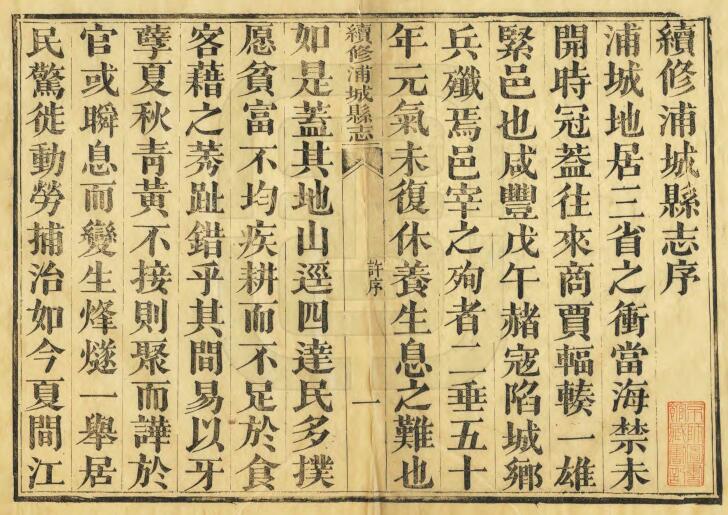 續修浦城縣志序
浦城地居三省之衝當海禁未
開時冠葢往來商賈輻輳一雄
緊邑也咸豐戊午赭寇陷城鄉
兵殲焉邑宰之殉者二垂五十
年元氣未復休養生息之難也
續修浦城縣志
許序
一
如是蓋其地山逕四達民多撲
愿貧富不均疾耕而不足於食
客藉之莠趾錯乎其間易以牙
孽夏秋青黃不接則聚而譁於
官或瞬息而變生烽燧一舉居
民驚徙動勞捕治如今夏間江